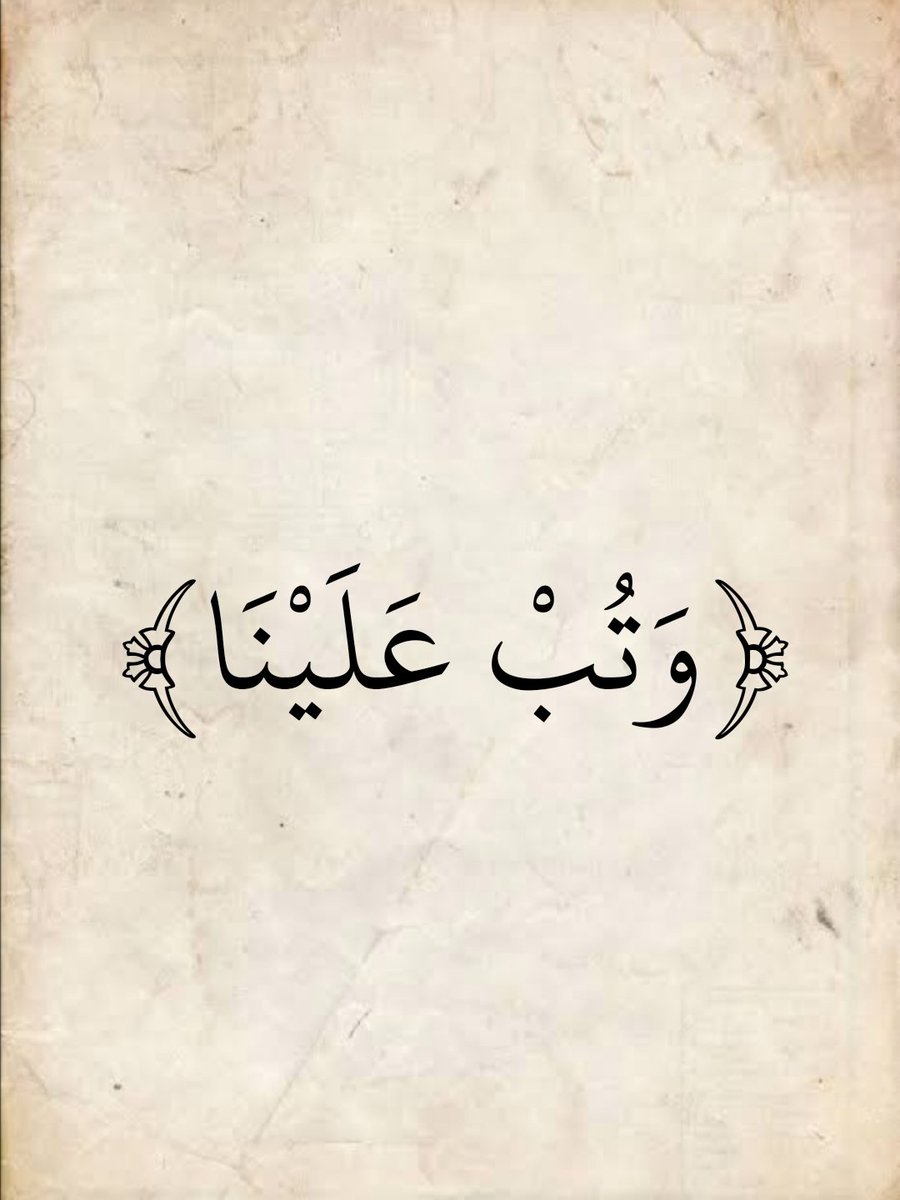 ﴿وَتُبْ عَلَيْنَا﴾